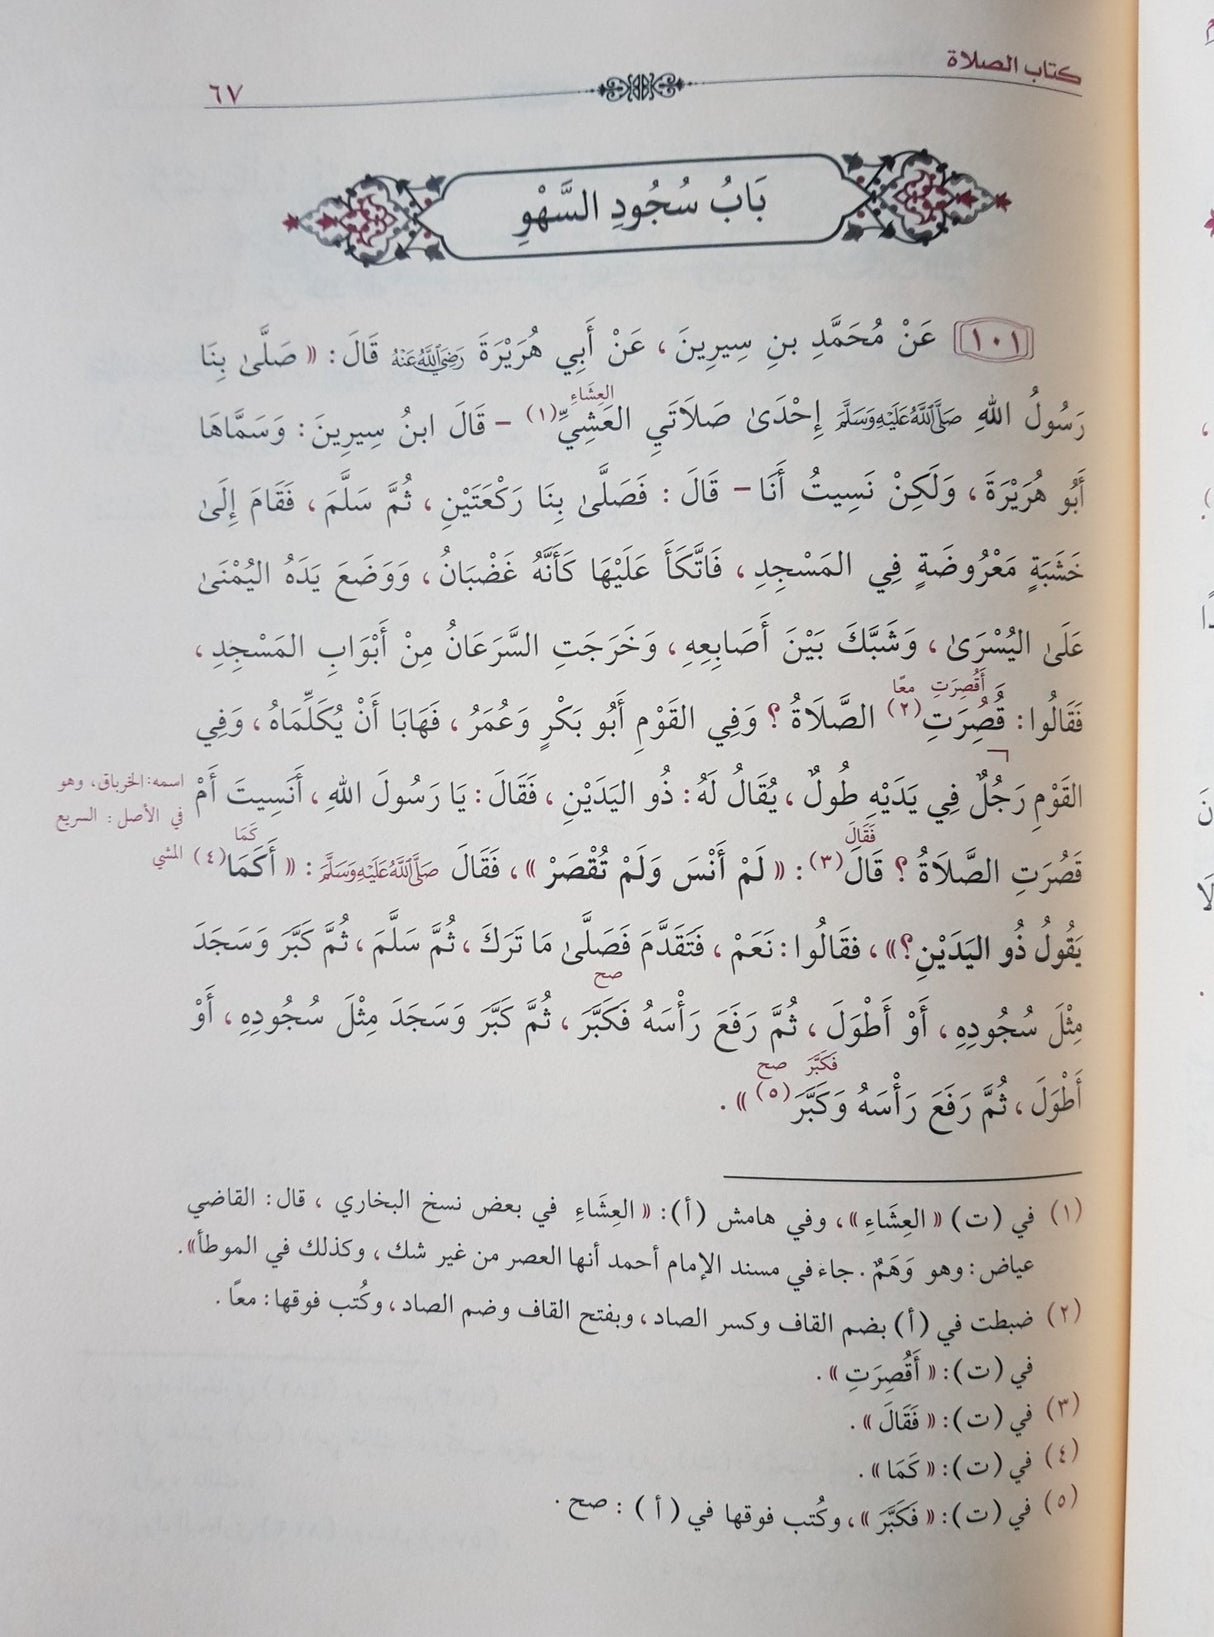 كتاب الصلاة
٦٧
بَابُ سُجُودِ السَّهْوِ
١٠١ عَنْ مُحَمَّدِ بنِ سِيرِينَ، عَنْ أَبِي هُرَيْرَةَ رَضِيَ اللَّهُ عَنْهُ قَالَ: « صَلَّىٰ بِنَا
العِشَاءِ
رَسُولُ اللهِ صَلَّى اللَّهُ عَلَيْهِ وَسَلَّمَ إِحْدَىٰ صَلَاتَيِ العَشِيِّ(١) – قَالَ ابنُ سِيرِينَ: وَسَمَّاهَا
أَبُو هُرَيْرَةَ، وَلَكِنْ نَسِيتُ أَنَا – قَالَ: فَصَلَّىٰ بِنَا رَكْعَتَيْنِ، ثُمَّ سَلَّمَ، فَقَامَ إِلَىٰ
خَشَبَةٍ مَعْرُوضَةٍ فِي المَسْجِدِ، فَاتَّكَأَ عَلَيْهَا كَأَنَّهُ غَضْبَانُ، وَوَضَعَ يَدَهُ اليُمْنَىٰ
عَلَىٰ اليُسْرَىٰ، وَشَبَّكَ بَيْنَ أَصَابِعِهِ، وَخَرَجَتِ السَّرَعَانُ مِنْ أَبْوَابِ المَسْجِدِ،
أَقُصِرَتِ معًا
فَقَالُوا: قَُصُِرَتِ(٢) الصَّلَاةُ؟ وَفِي القَوْمِ أَبُو بَكْرٍ وَعُمَرُ، فَهَابَا أَنْ يُكَلِّمَاهُ، وَفِي
القَوْمِ رَجُلٌ فِي يَدَيْهِ طُولٌ، يُقَالُ لَهُ: ذُو اليَدَيْنِ، فَقَالَ: يَا رَسُولَ اللهِ، أَنَسِيتَ أَمْ
اسمه: الخرباق، وهو
في الأصل: السريع
المشي
فَقَالَ كَمَا
قَصُرَتِ الصَّلَاةُ؟ قَالَ(٣): « لَمْ أَنْسَ وَلَمْ تُقْصَرْ »، فَقَالَ صَلَّى اللَّهُ عَلَيْهِ وَسَلَّمَ: « أَكَمَا(٤)
يَقُولُ ذُو اليَدَيْنِ؟»، فقَالُوا: نَعَمْ، فَتَقَدَّمَ فَصَلَّىٰ مَا تَرَكَ، ثُمَّ سَلَّمَ، ثُمَّ كَبَّرَ وَسَجَدَ
صح
مِثْلَ سُجُودِهِ، أَوْ أَطْوَلَ، ثُمَّ رَفَعَ رَأْسَهُ فَكَبَّرَ، ثُمَّ كَبَّرَ وَسَجَدَ مِثْلَ سُجُودِهِ، أَوْ
فَكَبَّرَ صح
أَطْوَلَ، ثُمَّ رَفَعَ رَأْسَهُ وَكَبَّرَ(٥) ».
(١) في (ت) « العِشَاءِ »، وفي هامش (أ): « العِشَاءِ في بعض نسخ البخاري، قال: القاضي
عياض: وهو وَهَمٌ. جاء في مسند الإمام أحمد أنها العصر من غير شك، وكذلك في الموطأ».
(٢) ضبطت في (أ) بضم القاف وكسر الصاد، وبفتح القاف وضم الصاد، وكُتب فوقها: معاً.
في (ت): « أَقُصِرَتِ ».
(٣) في (ت): « فَقَالَ ».
(٤) في (ت): « كَمَا ».
(٥) في (ت): « فَكَبَّرَ »، وكُتب فوقها في (أ): صح.